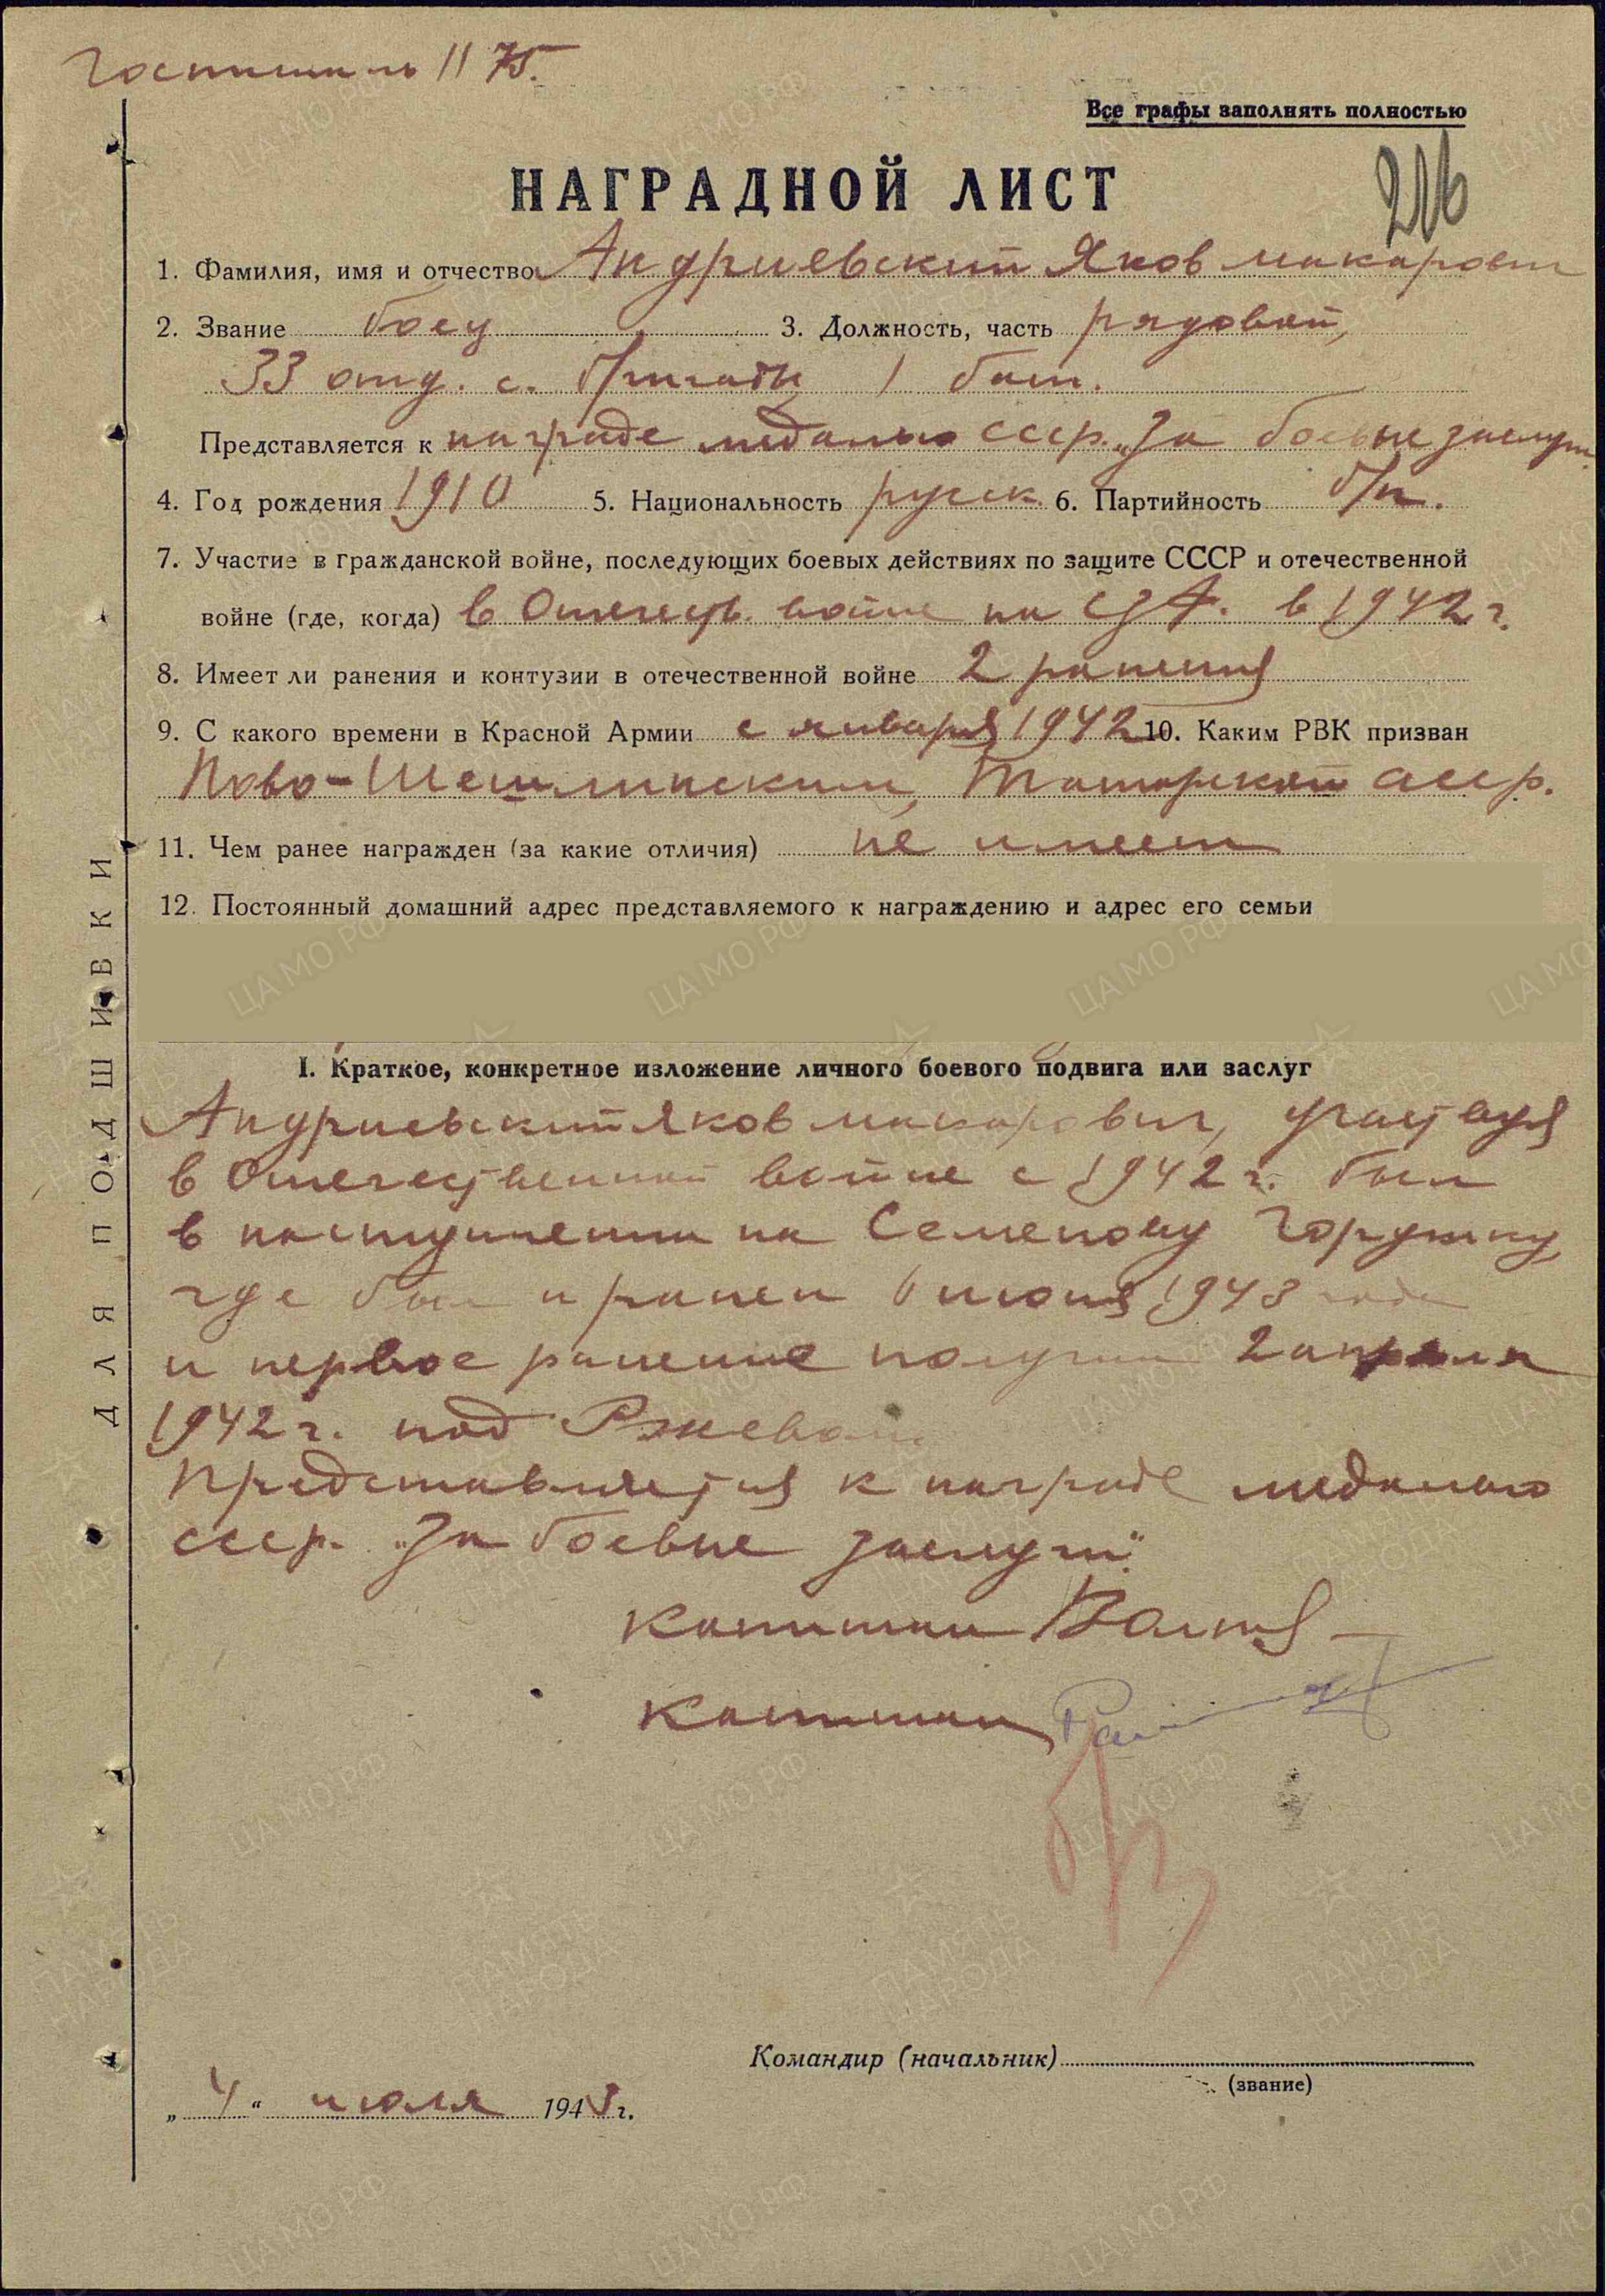 Госпиталь 1175.
Все графы заполнять полностью
206
НАГРАДНОЙ ЛИСТ
1. Фамилия, имя и отчество Андриевский Яков макарович
2. Звание боец 3. Должность, часть рядовой,
33 отд. с. бригады 1 бат.
Представляется к награде медалью ссср. „За боевые заслуги
4. Год рождения 1910 5. Национальность русск. 6. Партийность б/п.
7. Участие в гражданской войне, последующих боевых действиях по защите СССР и отечественной
войне (где, когда) в Отечеств. войне на СЗФ. в 1942 г.
8. Имеет ли ранения и контузии в отечественной войне 2 ранения
9. С какого времени в Красной Армии с января 1942 10. Каким РВК призван
Ново-Шешминским, Татарской асср.
11. Чем ранее награжден (за какие отличия) не имеет
12. Постоянный домашний адрес представляемого к награждению и адрес его семьи
I. Краткое, конкретное изложение личного боевого подвига или заслуг
Андриевский Яков макарович, участвуя
в Отечественной войне с 1942 г. был
в наступлении на Семенову Горушку,
где был и ранен 6 июня 1943 года
и первое ранение получил 2 апреля
1942 г. под Ржевом.
Представляется к награде медалью
ссср. „За боевые заслуги".
капитан
капитан
Командир (начальник)
(звание)
„ 4 “ июля 1943 г.
ДЛЯ ПОДШИВКИ
ЦА МО РФ
ПАМЯТЬ НАРОДА